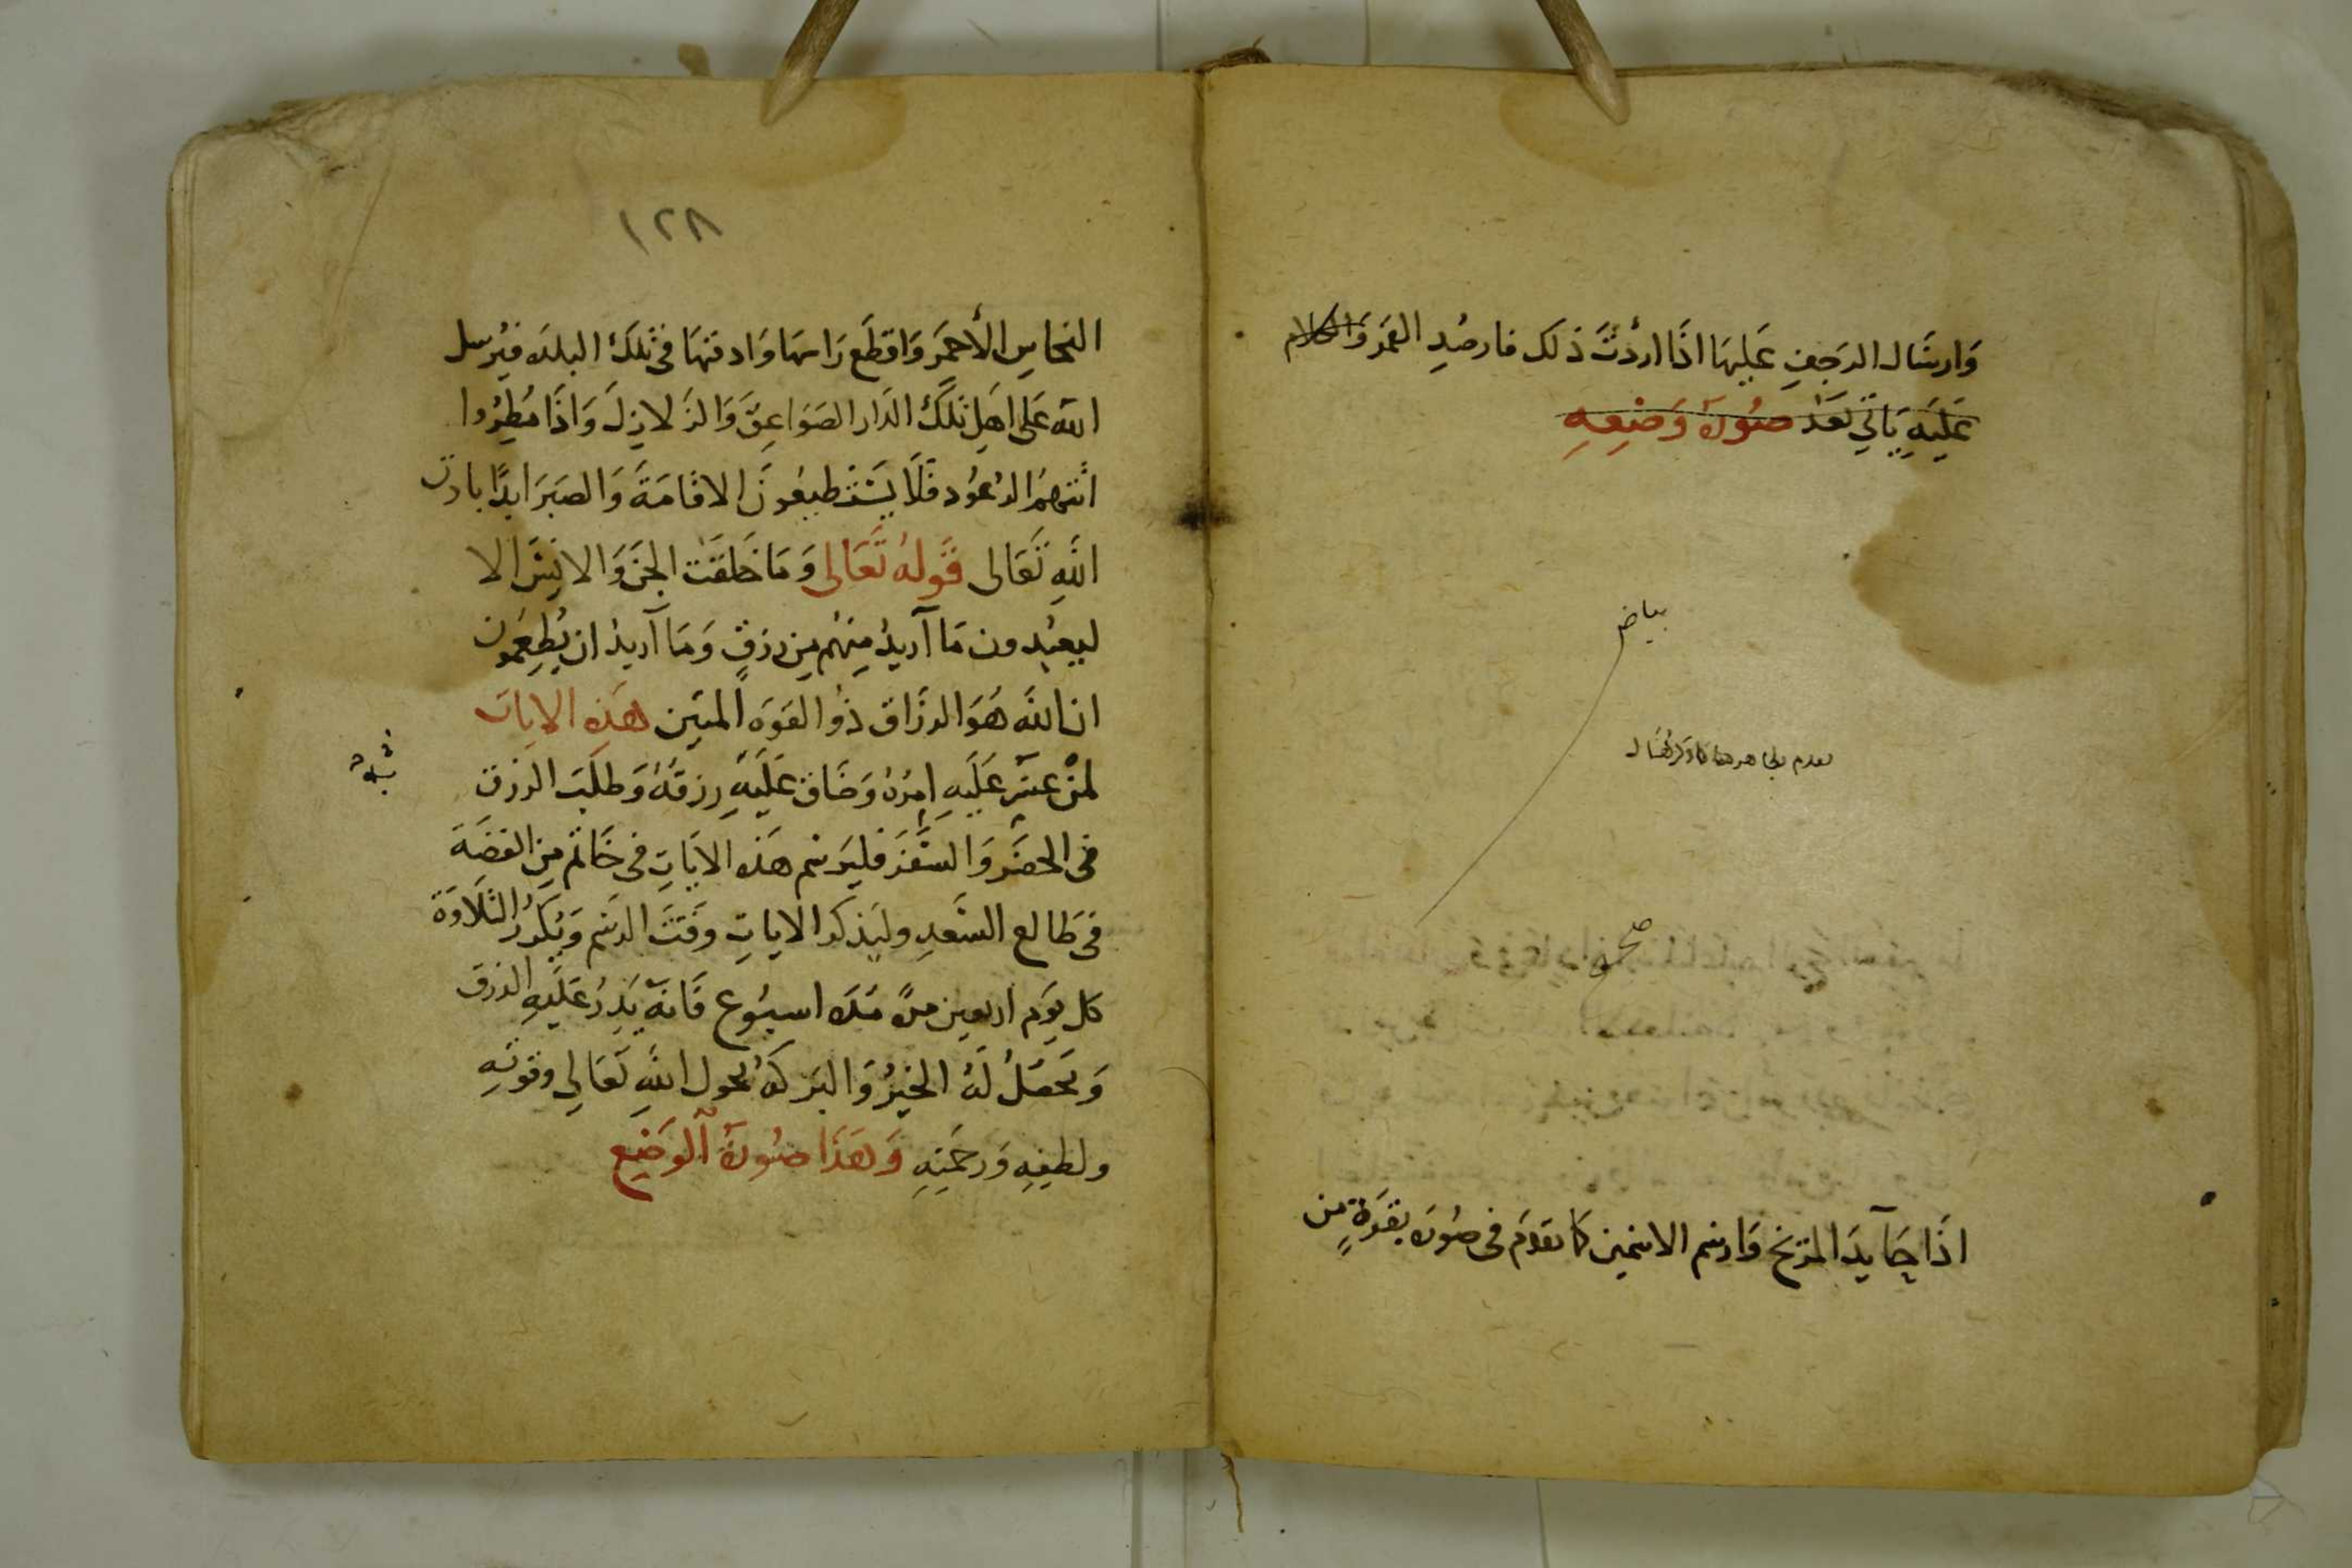 وَارسَال الرجفِ عَليهَا اذَا اردْتَ ذلك فارصُدِ القمَر وَالكلام
عَليَهِ يَاتي بَعَد صُورَة وَضعِهِ
بياض
صح
اذَا جَا يدَ المريخ وَارسم الاسمين كما تقدَم فى صُورَة بقرةٍ من
١٢٨
النحاسِ الأحمَر وَاقطَع رَاسهَا وَادفنهَا فى تلكَ البلدَه فيُرسل
الله عَلى اهَلِ تلكَ الدَار الصَوَاعِقَ وَالزَلازِلَ وَاذَا مُطِرُوا
اتتهمُ الرعُود فَلَا يَسْتَطيعُونَ الاقامَةَ وَالصَبرَ ابدًا باذن
اللهِ تَعَالى قَولهُ تَعَالى وَمَا خَلقَت الجنَ وَالانسَ الا
ليعبُدون مَا آريدُ مِنهُم مِن رزقٍ وَمَا آريدُ ان يُطِعمُون
ان الله هُوَ الرزَاق ذُو القوَه المتَين هَذِهِ الايات
لمن عسَر عَليَهِ امرُهُ وَضَاق عَليَهِ رزقهُ وَطلَبَ الرزق
فى الحضَر وَالسَفرَ فليَرسم هَذه الايَاتِ فى خَاتم مِن الفضَة
فى طَالع السَعدِ وليَذكر الاياتِ وقتَ الرسَم وَيُكَررُ التلَاوَة
كل يَوَم اربعين مرة مُدَة اسبُوع فَانهَ يَدِرُ عَليَهِ الرزق
وَيحَصَلُ لهُ الخيرُ وَالبرَكهُ بحول اللهِ تعَالي وقوتهِ
ولطفِهِ وَرحمَتِهِ وَهَذَا صُورَةُ الوَضَع